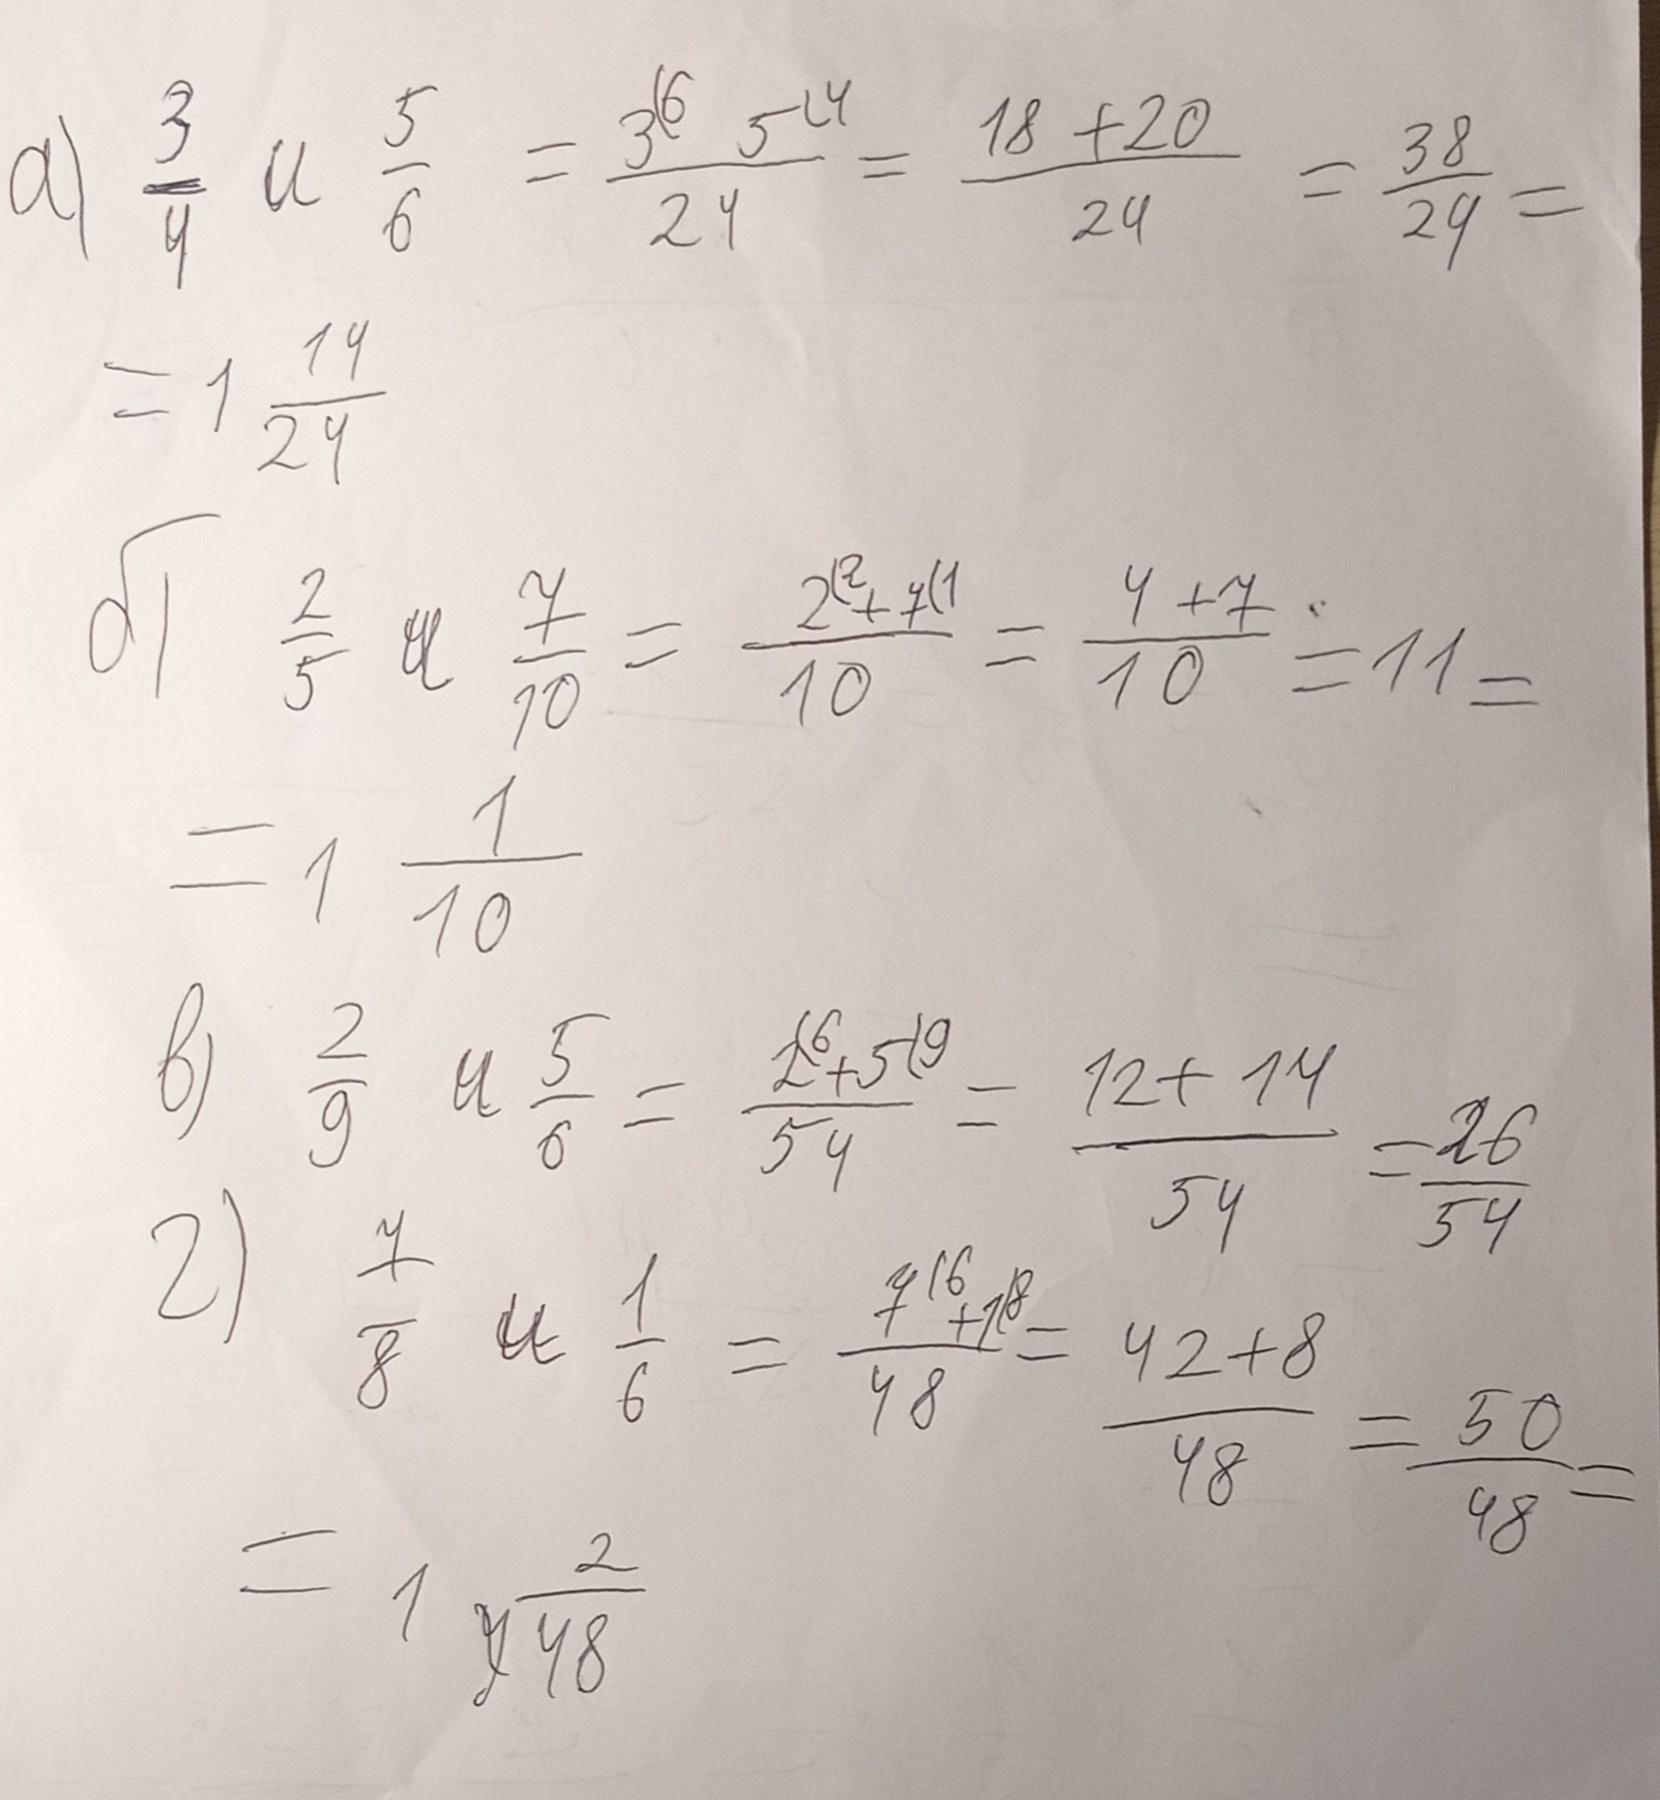 а) 3/4 и 5/6 = 3(6 5(4/24 = 18+20/24 = 38/24 =
= 1 14/24
б) 2/5 и 7/10 = 2(2+7(1/10 = 4+7/10 = 11 =
= 1 1/10
в) 2/9 и 5/6 = 2(6+5(9/54 = 12+14/54 = 26/54
г) 7/8 и 1/6 = 7(6+1(8/48 = 42+8/48 = 50/48 =
= 1 2/48